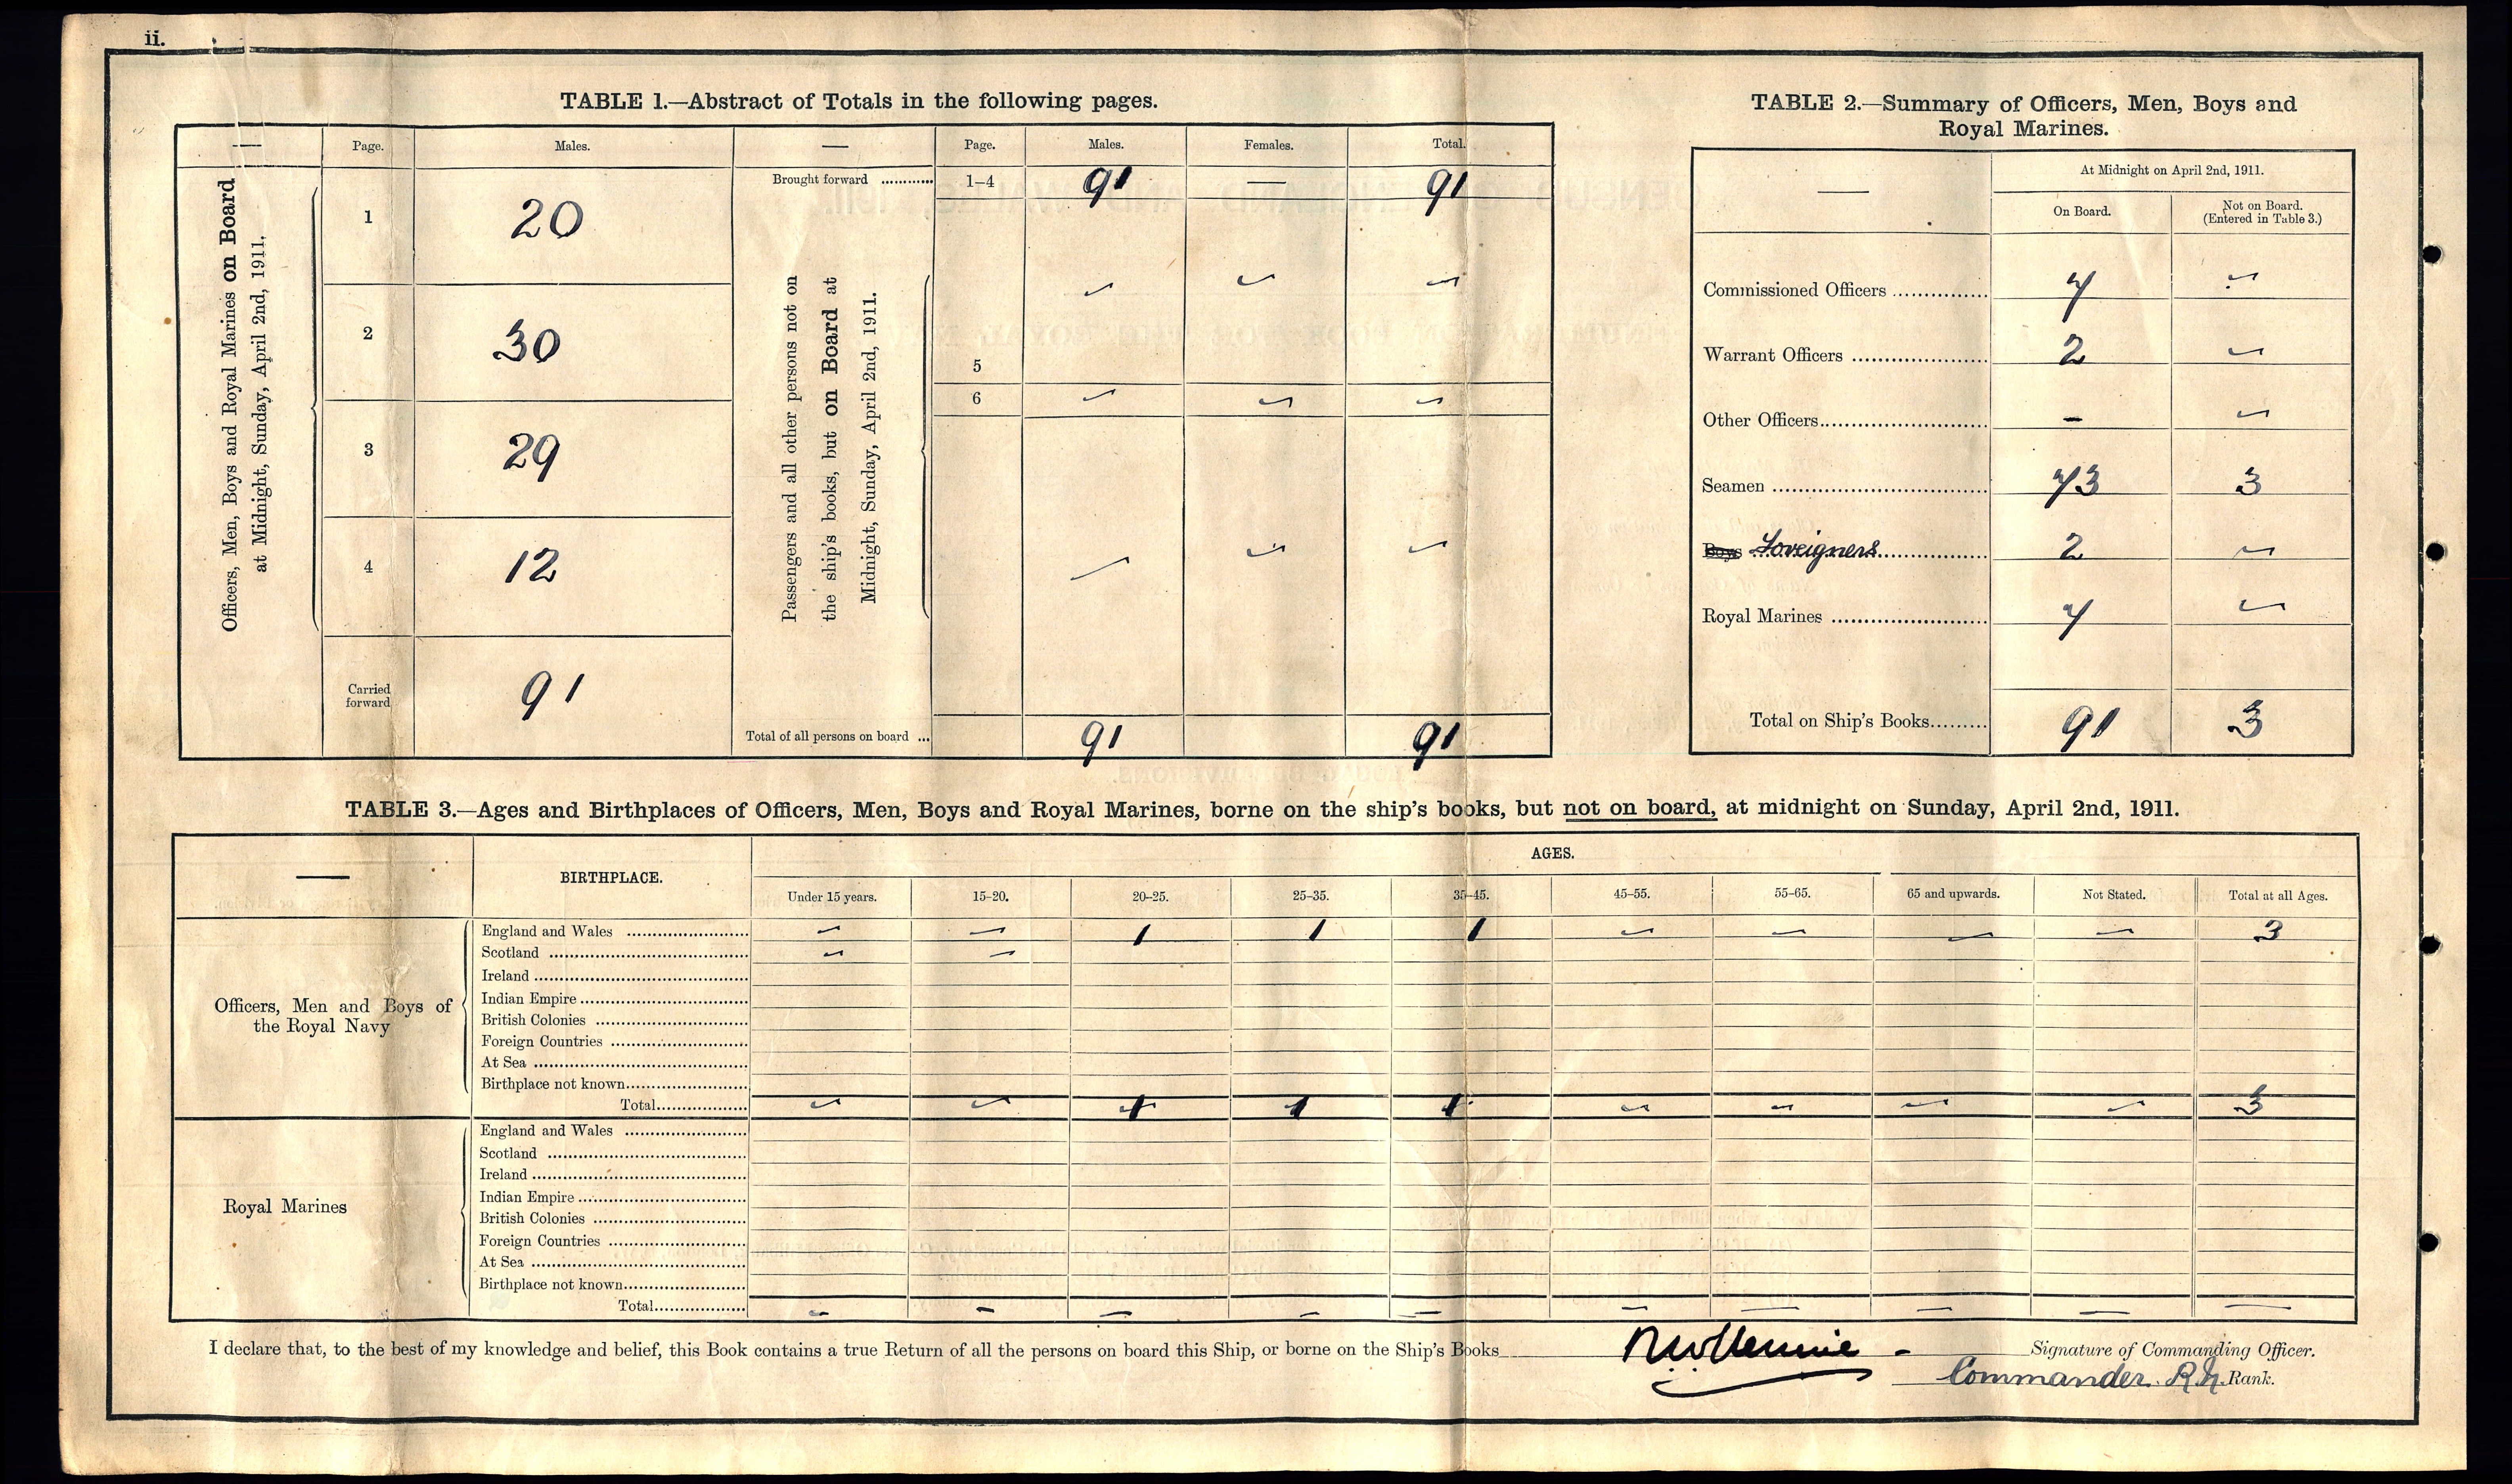 ii.
TABLE 1.—Abstract of Totals in the following pages.
— Page. Males. — Page. Males. Females. Total.
Officers, Men, Boys and Royal Marines on Board
at Midnight, Sunday, April 2nd, 1911.
1 20
2 30
3 29
4 12
Carried forward 91
Brought forward ............ 1–4 91 — 91
Passengers and all other persons not on
the ship's books, but on Board at
Midnight, Sunday, April 2nd, 1911.
5 – – –
6 – – –
– – –
Total of all persons on board ... 91 91
TABLE 2.—Summary of Officers, Men, Boys and
Royal Marines.
— At Midnight on April 2nd, 1911.
On Board. Not on Board.
(Entered in Table 3.)
Commissioned Officers ............... 7 –
Warrant Officers ..................... 2 –
Other Officers.......................... – –
Seamen ................................. 73 3
Boys Foreigners.................. 2 –
Royal Marines ........................ 7 –
Total on Ship's Books......... 91 3
TABLE 3.—Ages and Birthplaces of Officers, Men, Boys and Royal Marines, borne on the ship's books, but not on board, at midnight on Sunday, April 2nd, 1911.
— BIRTHPLACE. AGES.
Under 15 years. 15–20. 20–25. 25–35. 35–45. 45–55. 55–65. 65 and upwards. Not Stated. Total at all Ages.
Officers, Men and Boys of
the Royal Navy
England and Wales ........................ – – 1 1 1 – – – – 3
Scotland ........................ – –
Ireland ........................
Indian Empire ........................
British Colonies ........................
Foreign Countries ........................
At Sea ........................
Birthplace not known........................
Total.................. – – 1 1 1 – – – – 3
Royal Marines
England and Wales ........................
Scotland ........................
Ireland ........................
Indian Empire ........................
British Colonies ........................
Foreign Countries ........................
At Sea ........................
Birthplace not known........................
Total.................. – – – – – – – – – –
I declare that, to the best of my knowledge and belief, this Book contains a true Return of all the persons on board this Ship, or borne on the Ship's Books
Signature of Commanding Officer.
Commander. R.N. Rank.